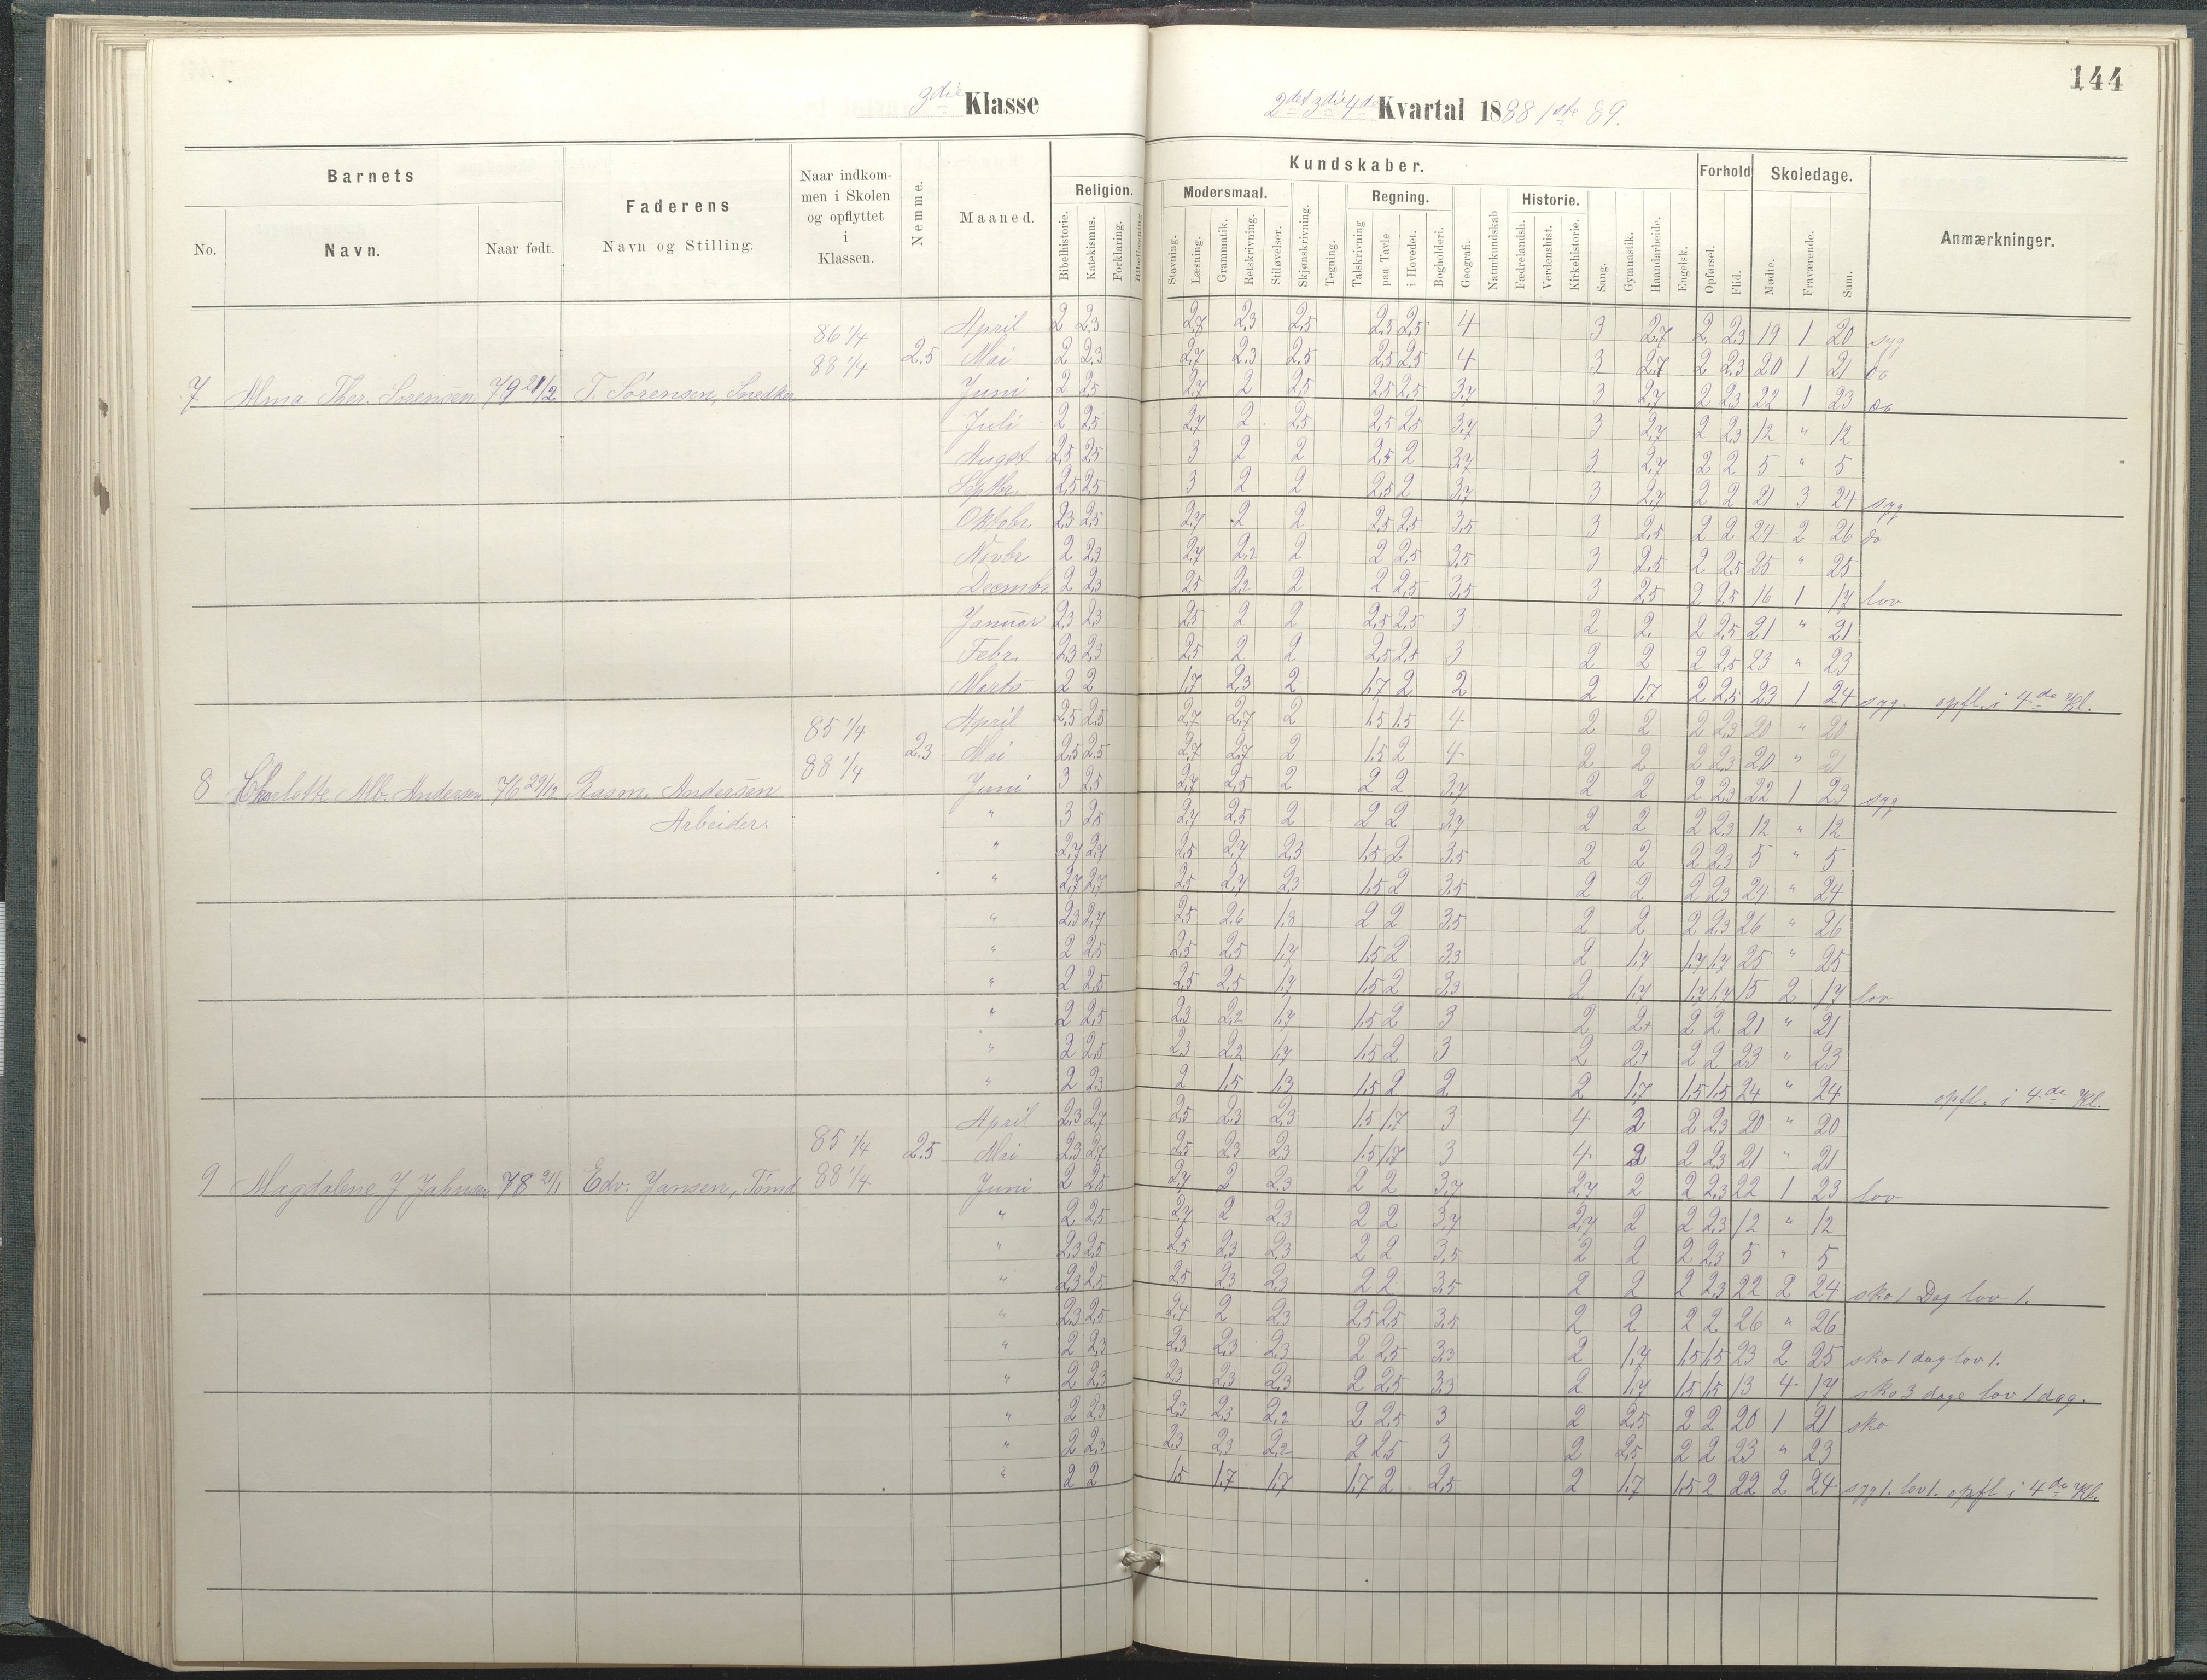 144
3die Klasse
2det 3die 4de Kvartal 1888 1ste 89.
Barnets
Faderens
Naar indkommen i Skolen og opflyttet i Klassen.
Nemme.
Maaned.
Kundskaber.
Forhold
Skoledage.
Anmærkninger.
No.
Navn.
Naar født.
Navn og Stilling.
Religion.
Modersmaal.
Regning.
Historie.
Bibelhistorie. Katekismus. Forklaring. Bibellæsning. Stavning. Læsning. Grammatik. Retskrivning. Stiløvelser. Skjønskrivning. Tegning. Talskrivning paa Tavle i Hovedet. Bogholderi. Geografi. Naturkundskab Fædrelandsh. Verdenshist. Kirkehistorie. Sang. Gymnastik. Haandarbeide. Engelsk. Opførsel. Flid. Mødte. Fraværende. Sum.
86 1/4
88 1/4
2.5
7 Alma Ther. Sorensen 79 21/2 T. Sörensen, Snedker
April 2 2.3 2.7 2.3 2.5 2.5 2.5 4 3 2.7 2 2.3 19 1 20 syg
Mai 2 2.3 2.7 2.3 2.5 2.5 2.5 4 3 2.7 2 2.3 20 1 21 do
Juni 2 2.5 2.7 2 2.5 2.5 2.5 3.7 3 2.7 2 2.3 22 1 23 do
Juli 2 2.5 2.7 2 2.5 2.5 2.5 3.7 3 2.7 2 2.3 12 " 12
August 2.5 2.5 3 2 2 2.5 2 3.7 3 2.7 2 2 5 " 5
Septbr. 2.5 2.5 3 2 2 2.5 2 3.7 3 2.7 2 2 21 3 24 syg
Oktobr. 2.3 2.5 2.7 2 2 2.5 2.5 3.5 3 2.5 2 2 24 2 26 do
Novbr 2 2.3 2.7 2.2 2 2 2.5 3.5 3 2.5 2 2.5 25 " 25
Decembr 2 2.3 2.5 2.2 2 2 2.5 3.5 3 2.5 2 2.5 16 1 17 lov
Januar 2.3 2.3 2.5 2 2 2.5 2.5 3 2 2 2 2.5 21 " 21
Febr. 2.3 2.3 2.5 2 2 2.5 2.5 3 2 2 2 2.5 23 " 23
Marts 2 2 1.7 2.3 2 1.7 2 2 2 1.7 2 2.5 23 1 24 syg. opfl. i 4de Kl.
85 1/4
88 1/4
2.3
8 Charlotte Alb. Andersen 76 29/12 Rasm. Andersen
Arbeider.
April 2.5 2.5 2.7 2.7 2 1.5 1.5 4 2 2 2 2.3 20 " 20
Mai 2.5 2.5 2.7 2.7 2 1.5 2 4 2 2 2 2.3 20 " 21
Juni 3 2.5 2.7 2.5 2 2 2 3.7 2 2 2 2.3 22 1 23 syg
" 3 2.5 2.7 2.5 2 2 2 3.7 2 2 2 2.3 12 " 12
" 2.7 2.7 2.5 2.7 2.3 1.5 2 3.5 2 2 2 2.3 5 " 5
" 2.7 2.7 2.5 2.7 2.3 1.5 2 3.5 2 2 2 2.3 24 " 24
" 2.3 2.7 2.5 2.6 1.8 2 2 3.5 2 2 2 2.3 26 " 26
" 2 2.5 2.5 2.5 1.7 1.5 2 3.3 2 1.7 1.7 1.7 25 " 25
" 2 2.5 2.5 2.5 1.7 1.5 2 3.3 2 1.7 1.7 1.7 15 2 17 lov
" 2 2.5 2.3 2.2 1.7 1.5 2 3 2 2+ 2 2 21 " 21
" 2 2.5 2.3 2.2 1.7 1.5 2 3 2 2+ 2 2 23 " 23
" 2 2.3 2 1.5 1.3 1.5 2 2 2 1.7 1.5 1.5 24 " 24 opfl. i 4de Kl.
85 1/4
88 1/4
2.5
9 Magdalene J Jahnsen 78 21/1 Edv. Jansen, Tømd
April 2.3 2.7 2.5 2.3 2.3 1.5 1.7 3 4 2 2 2.3 20 " 20
Mai 2.3 2.7 2.5 2.3 2.3 1.5 1.7 3 4 2 2 2.3 21 " 21
Juni 2 2.5 2.7 2 2.3 2 2 3.7 2.7 2 2 2.3 22 1 23 lov
" 2 2.5 2.7 2 2.3 2 2 3.7 2.7 2 2 2.3 12 " 12
" 2.3 2.5 2.5 2.3 2.3 2 2 3.5 2 2 2 2.3 5 " 5
" 2.3 2.5 2.5 2.3 2.3 2 2 3.5 2 2 2 2.3 22 2 24 sko 1 Dag lov 1.
" 2.3 2.5 2.4 2 2.3 2.5 2.5 3.5 2 2 2 2 26 " 26
" 2 2.3 2.3 2.3 2.3 2 2.5 3.3 2 1.7 1.5 1.5 23 2 25 sko 1 dag lov 1.
" 2 2.3 2.3 2.3 2.3 2 2.5 3.3 2 1.7 1.5 1.5 13 4 17 sko 3 dage lov 1 dag.
" 2 2.3 2.3 2.3 2.2 2 2.5 3 2 2.5 2 2 20 1 21 sko
" 2 2.3 2.3 2.3 2.2 2 2.5 3 2 2.5 2 2 23 " 23
" 2 2 1.5 1.7 1.7 1.7 2 2.5 2 1.7 1.5 2 22 2 24 syg 1. lov 1. opfl i 4de Kl.